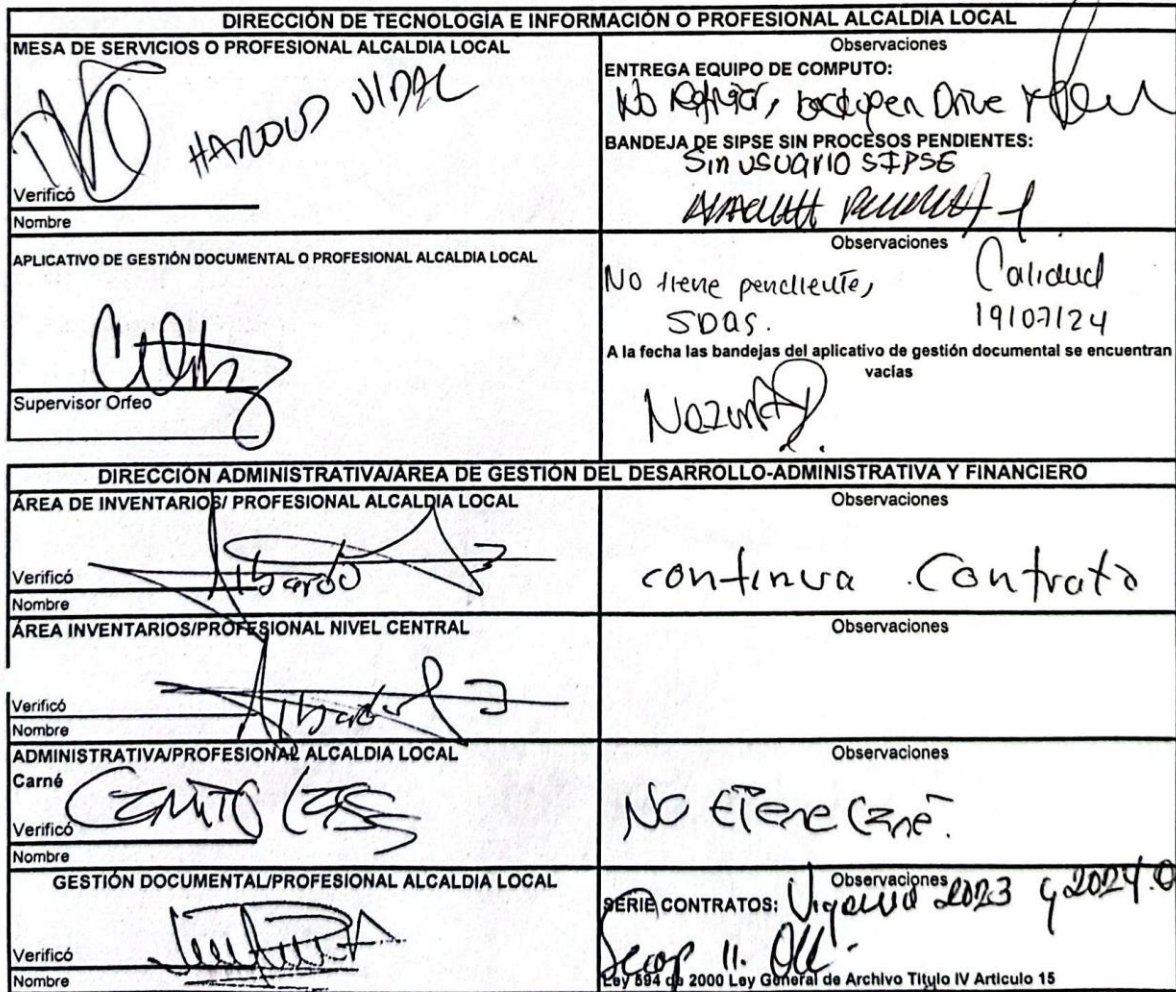 DIRECCIÓN DE TECNOLOGÍA E INFORMACIÓN O PROFESIONAL ALCALDIA LOCAL
MESA DE SERVICIOS O PROFESIONAL ALCALDIA LOCAL
HAROLD VIDAL
Verificó
Nombre
Observaciones
ENTREGA EQUIPO DE COMPUTO:
No Drive
BANDEJA DE SIPSE SIN PROCESOS PENDIENTES:
Sin usuario SIPSE
APLICATIVO DE GESTIÓN DOCUMENTAL O PROFESIONAL ALCALDIA LOCAL
Supervisor Orfeo
Observaciones
No tiene pendiente, Calidad
SDQS. 19/07/24
A la fecha las bandejas del aplicativo de gestión documental se encuentran
vacías
DIRECCIÓN ADMINISTRATIVA/ÁREA DE GESTIÓN DEL DESARROLLO-ADMINISTRATIVA Y FINANCIERO
ÁREA DE INVENTARIOS/ PROFESIONAL ALCALDIA LOCAL
Verificó
Nombre
Observaciones
continua Contrato
ÁREA INVENTARIOS/PROFESIONAL NIVEL CENTRAL
Verificó
Nombre
Observaciones
ADMINISTRATIVA/PROFESIONAL ALCALDIA LOCAL
Carné
Verificó
Nombre
Observaciones
No tiene Carné.
GESTIÓN DOCUMENTAL/PROFESIONAL ALCALDIA LOCAL
Verificó
Nombre
Observaciones
SERIE CONTRATOS: Vigencia 2023 y 2024.
Secop II. OK.
Ley 594 de 2000 Ley General de Archivo Titulo IV Articulo 15